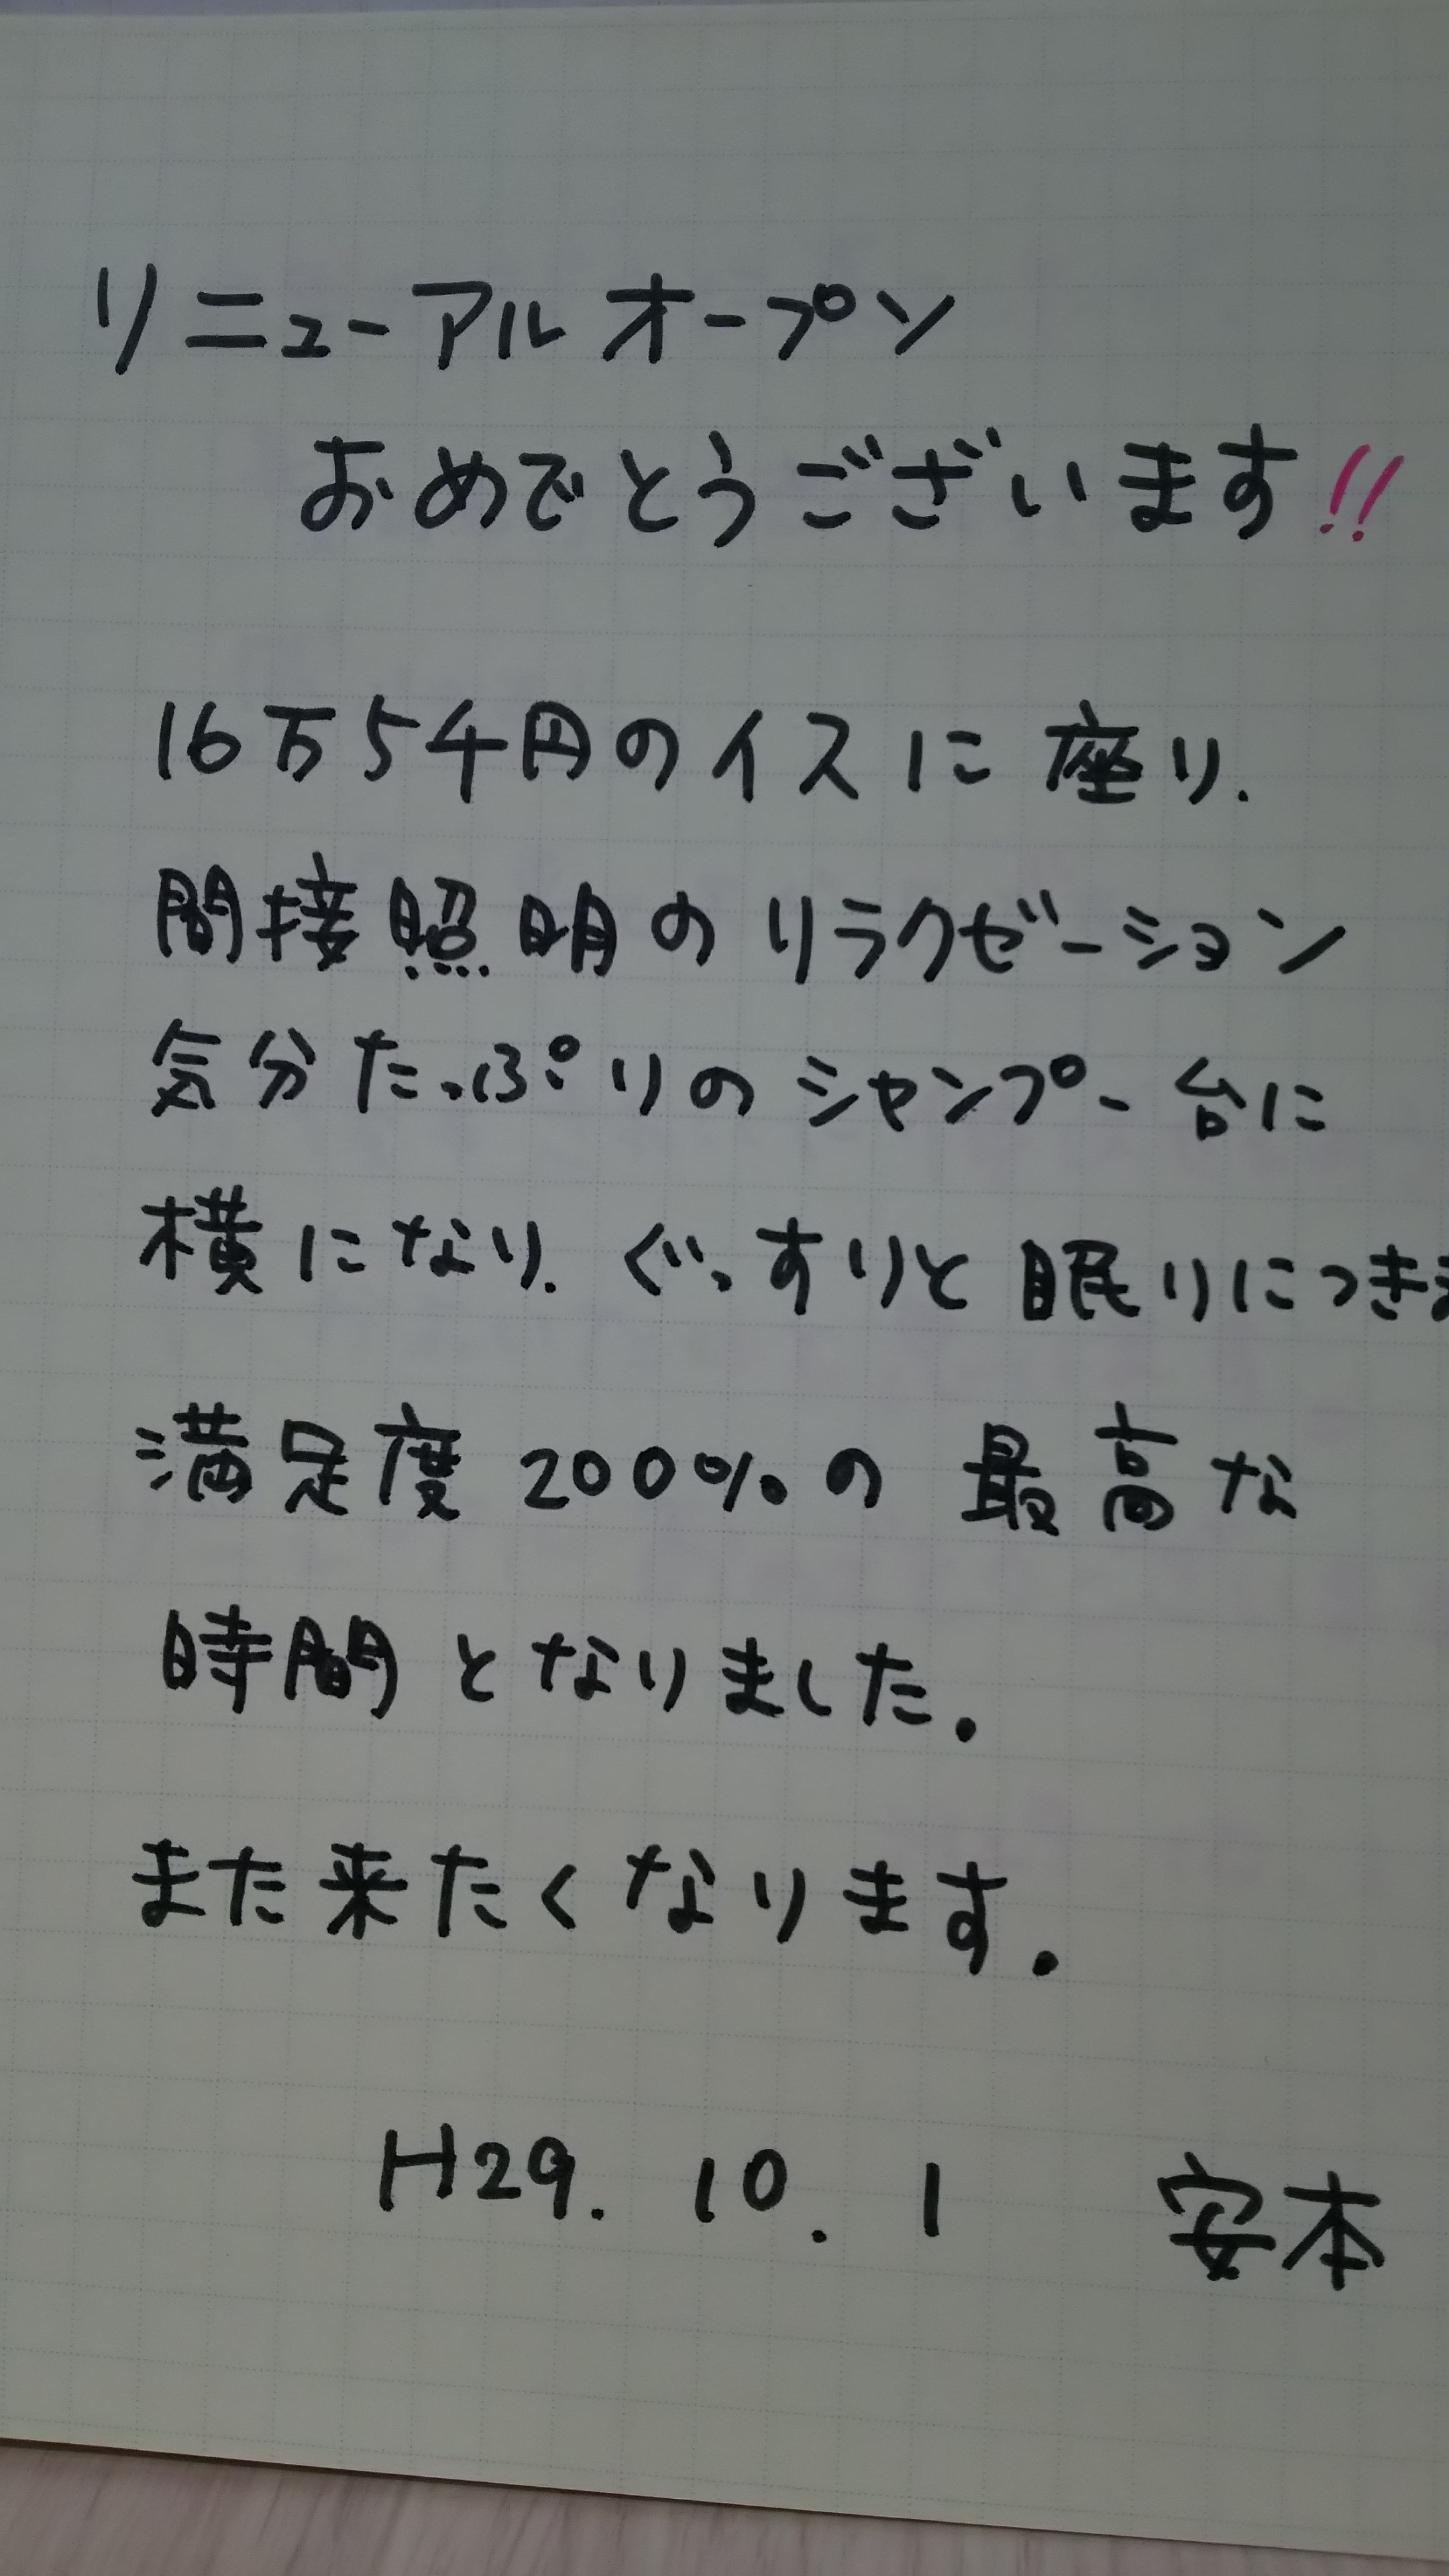 リニューアルオープン
おめでとうございます!!
16万5千円のイスに座り.
間接照明のリラクゼーション
気分たっぷりのシャンプー台に
横になり.ぐっすりと眠りにつき
満足度200%の最高な
時間となりました.
また来たくなります.
H29. 10. 1 安本